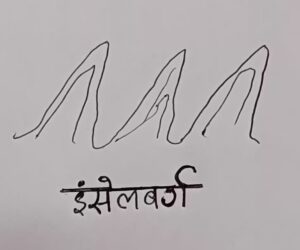 इंसेलबर्ग